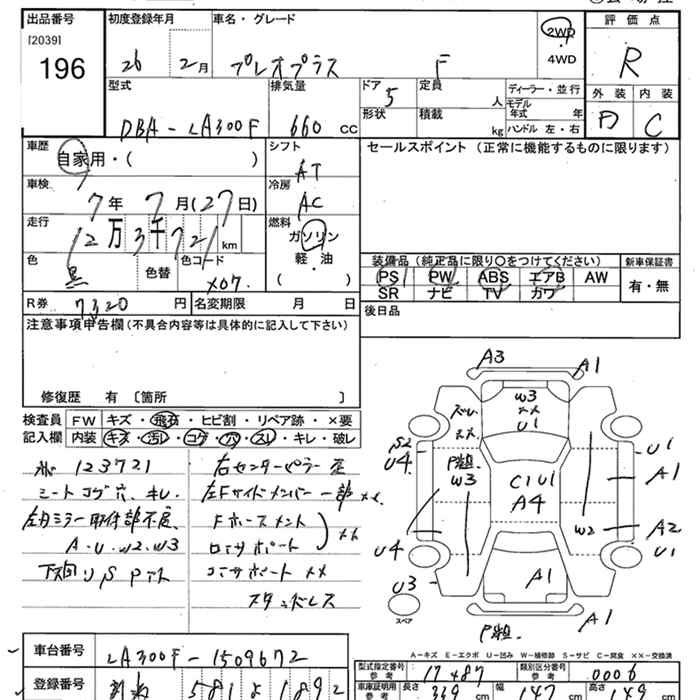 出品番号 初度登録年月 車名・グレード 2WD 評価点
[2039]
196 26年 2月 プレオプラス F 4WD R
型式 排気量 ドア 5 定員 人 ディーラー・並行 外装 内装
形状 積載 kg モデル年式 年 ハンドル 左・右
DBA-LA300F 660 CC D C
車歴 自家用・( ) シフト AT セールスポイント (正常に機能するものに限ります)
車検 7年 7月(27日) 冷房 AC
走行 12万3千721km 燃料 ガソリン
軽・油
色 黒 色替 色コード X07 ( ) 装備品(純正品に限り〇をつけてください) 新車保証書
PS PW ABS エアB AW 有・無
SR ナビ TV カワ
R券 7320円 名変期限 月 日 後日品
注意事項申告欄(不具合内容等は具体的に記入して下さい)
修復歴 有 〔箇所 〕
検査員 FW キズ・飛石・ヒビ割・リペア跡・×要
記入欄 内装 キズ・汚レ・コゲ・穴・スレ・キレ・破レ
123721
シートコゲ穴、キレ
左右ミラー取付部不良
A・U・W2・W3
下回りS
右センターピラー
左Fサイドメンバー一部 ××
Fホースメント
ロアサポート ××
コアサポート ××
スタッドレス
A3 A1
W3
××
U1
ズレ
××
P粗
W3
S2
U4
U1
A1
C1U1
A4
W2
A2
U1
U4
U3
A1
A1
P粗
スペア
A-キズ E-エクボ U-凹み W-補修跡 S-サビ C-腐食 ××-交換済
車台番号 LA300F-1509672
型式指定番号 参考 17487 類別区分番号 参考 0006
登録番号 581 よ 1892
車庫証明用 参考 長さ 339 cm 幅 147 cm 高さ 159 cm